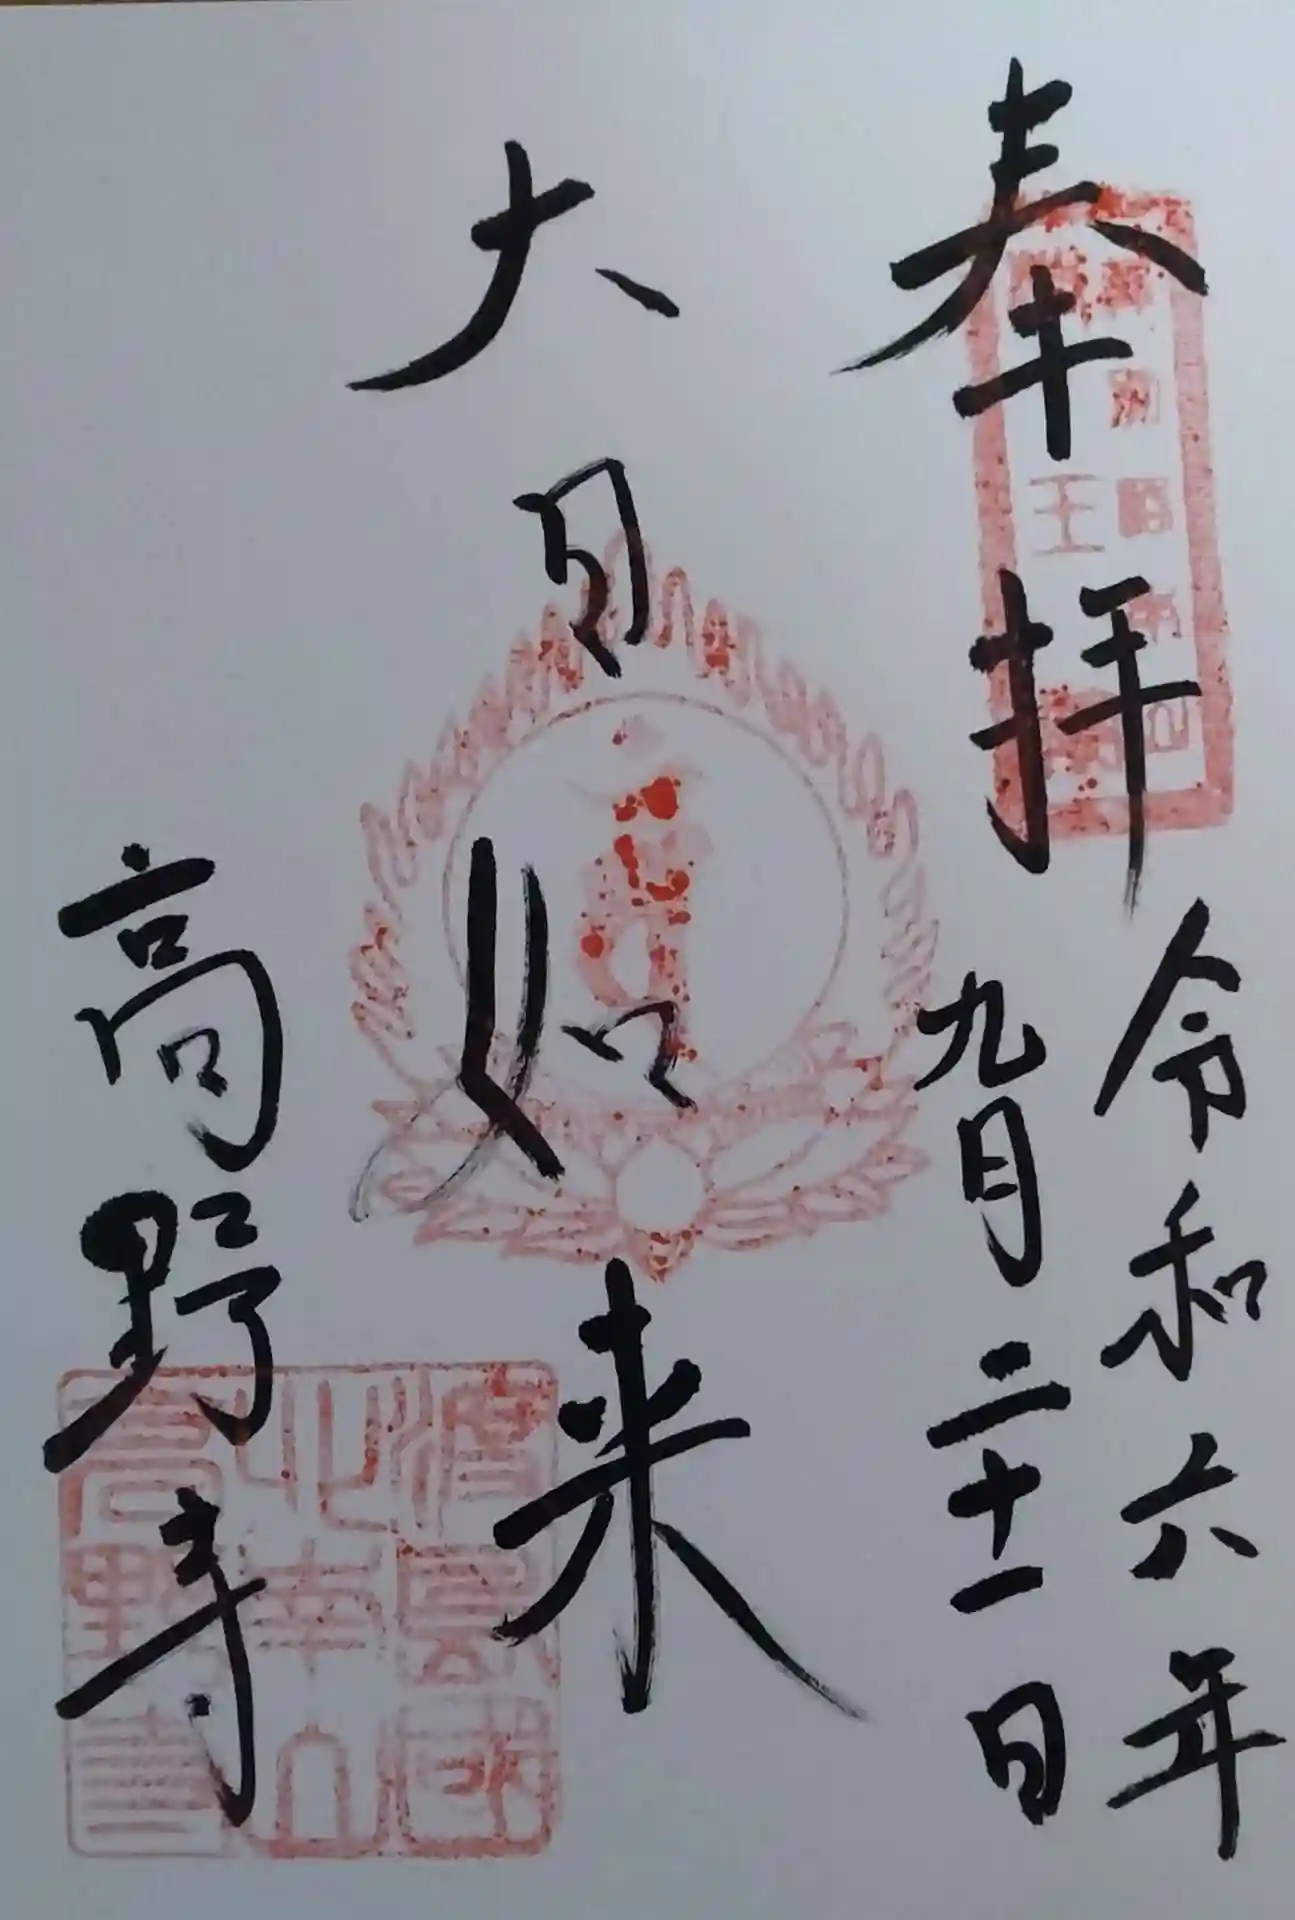 奉拝
令和六年
九月二十一日
大日如来
高野寺